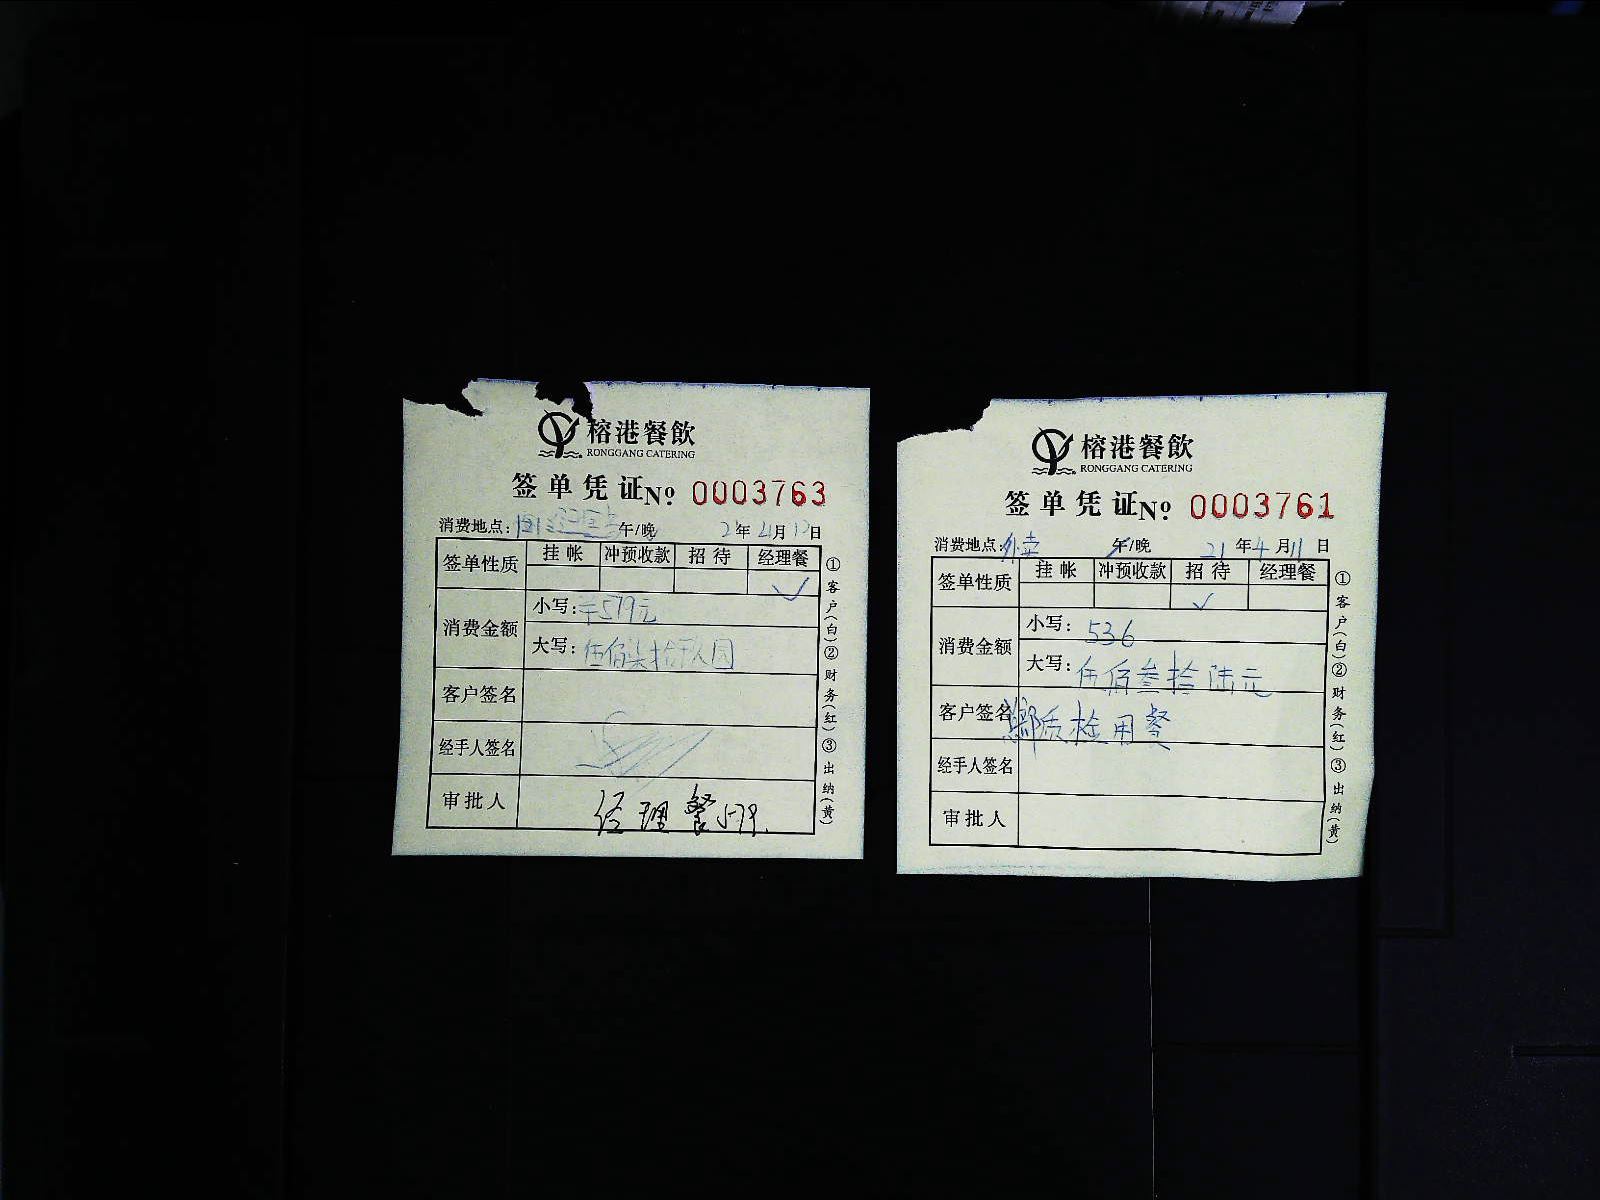 榕港餐飲
RONGGANG CATERING
签单凭证№ 0003763
消费地点: 午/晚 21年4月12日
签单性质 挂帐 冲预收款 招待 经理餐
✓
消费金额 小写: 579元
大写: 伍佰柒拾玖圆
客户签名
经手人签名
审批人 经理餐579.
①客户(白)②财务(红)③出纳(黄)
榕港餐飲
RONGGANG CATERING
签单凭证№ 0003761
消费地点: 外卖 午/晚 21年4月11日
签单性质 挂帐 冲预收款 招待 经理餐
✓
消费金额 小写: 536
大写: 伍佰叁拾陆元
客户签名 质检用餐
经手人签名
审批人
①客户(白)②财务(红)③出纳(黄)